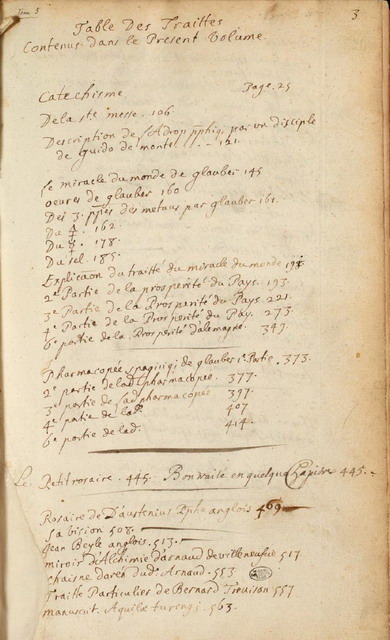 Tom 5
3
Table Des Traittés
Contenus dans le Present Volume
Catechisme Page. 25
De la ste messe. 106
Description de l'Adrop pphiq; par un disciple
de Guido de monte . . . 121.
Le miracle du monde de glauber 145
oeures de glauber 160
Des 3. ppes des metaux par glauber 161.
Du 🜍 162.
Du ☿ 178.
Du sel. 185.
Explicaon du traitté du miracle du monde 193
2e Partie de la prosperité du Pays. 193.
3e Partie de la Prosperité du Pays 221.
4e Partie de la Prosperité du Pay. 273
6e partie de la Prosperité d'alemagne. 349.
Pharmacopée spagiriq; de glauber 1e Partie. 373.
2e partie de lad. pharmacopée. 377.
3e partie de lad pharmacopée 397.
4e partie de lad. 407
6e partie de lad. 414.
Le Petit rosaire. 445. Bon traité en quelque Chapitre 445.
Rosaire De D'austenius Pphe anglois 469
Sa vision 508.
Jean Beyle anglois. 513.
miroir d'Alchimie d'arnaud de villeneufve 517
chaisne dorée dud. Arnaud. 553
Traitte Particulier de Bernard Trevisan 557
manuscrit. Aquilæ turengi. 563.